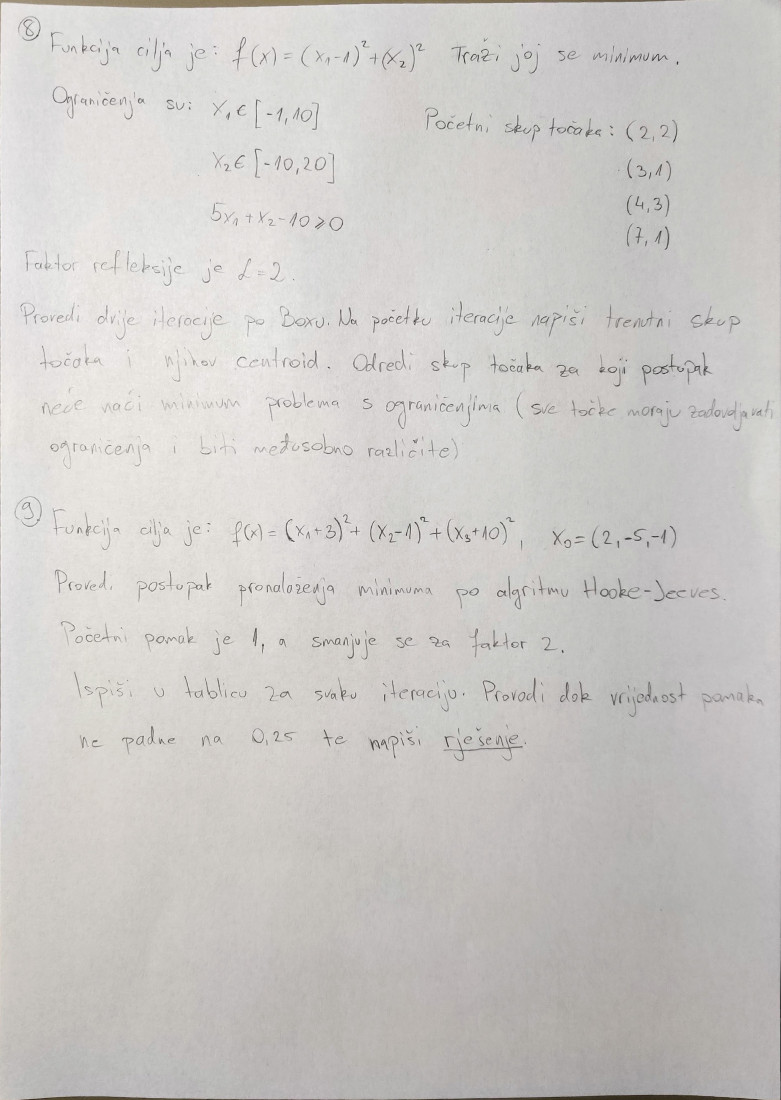 ⑧ Funkcija cilja je: f(x) = (x₁-1)² + (x₂)² Traži joj se minimum.
Ograničenja su: x₁ ∈ [-1,10]
Početni skup točaka: (2,2)
x₂ ∈ [-10,20]
(3,1)
(4,3)
5x₁ + x₂ - 10 ≥ 0
(7,1)
Faktor refleksije je α = 2.
Provedi dvije iteracije po Boxu. Na početku iteracije napiši trenutni skup
točaka i njihov centroid. Odredi skup točaka za koji postupak
neće naći minimum problema s ograničenjima (sve točke moraju zadovoljavati
ograničenja i biti međusobno različite)
⑨ Funkcija cilja je: f(x) = (x₁+3)² + (x₂-1)² + (x₃+10)², x₀ = (2,-5,-1)
Provedi postupak pronalaženja minimuma po algritmu Hooke-Jeeves.
Početni pomak je 1, a smanjuje se za faktor 2.
Ispiši u tablicu za svaku iteraciju. Provodi dok vrijednost pomaka
ne padne na 0,25 te napiši rješenje.